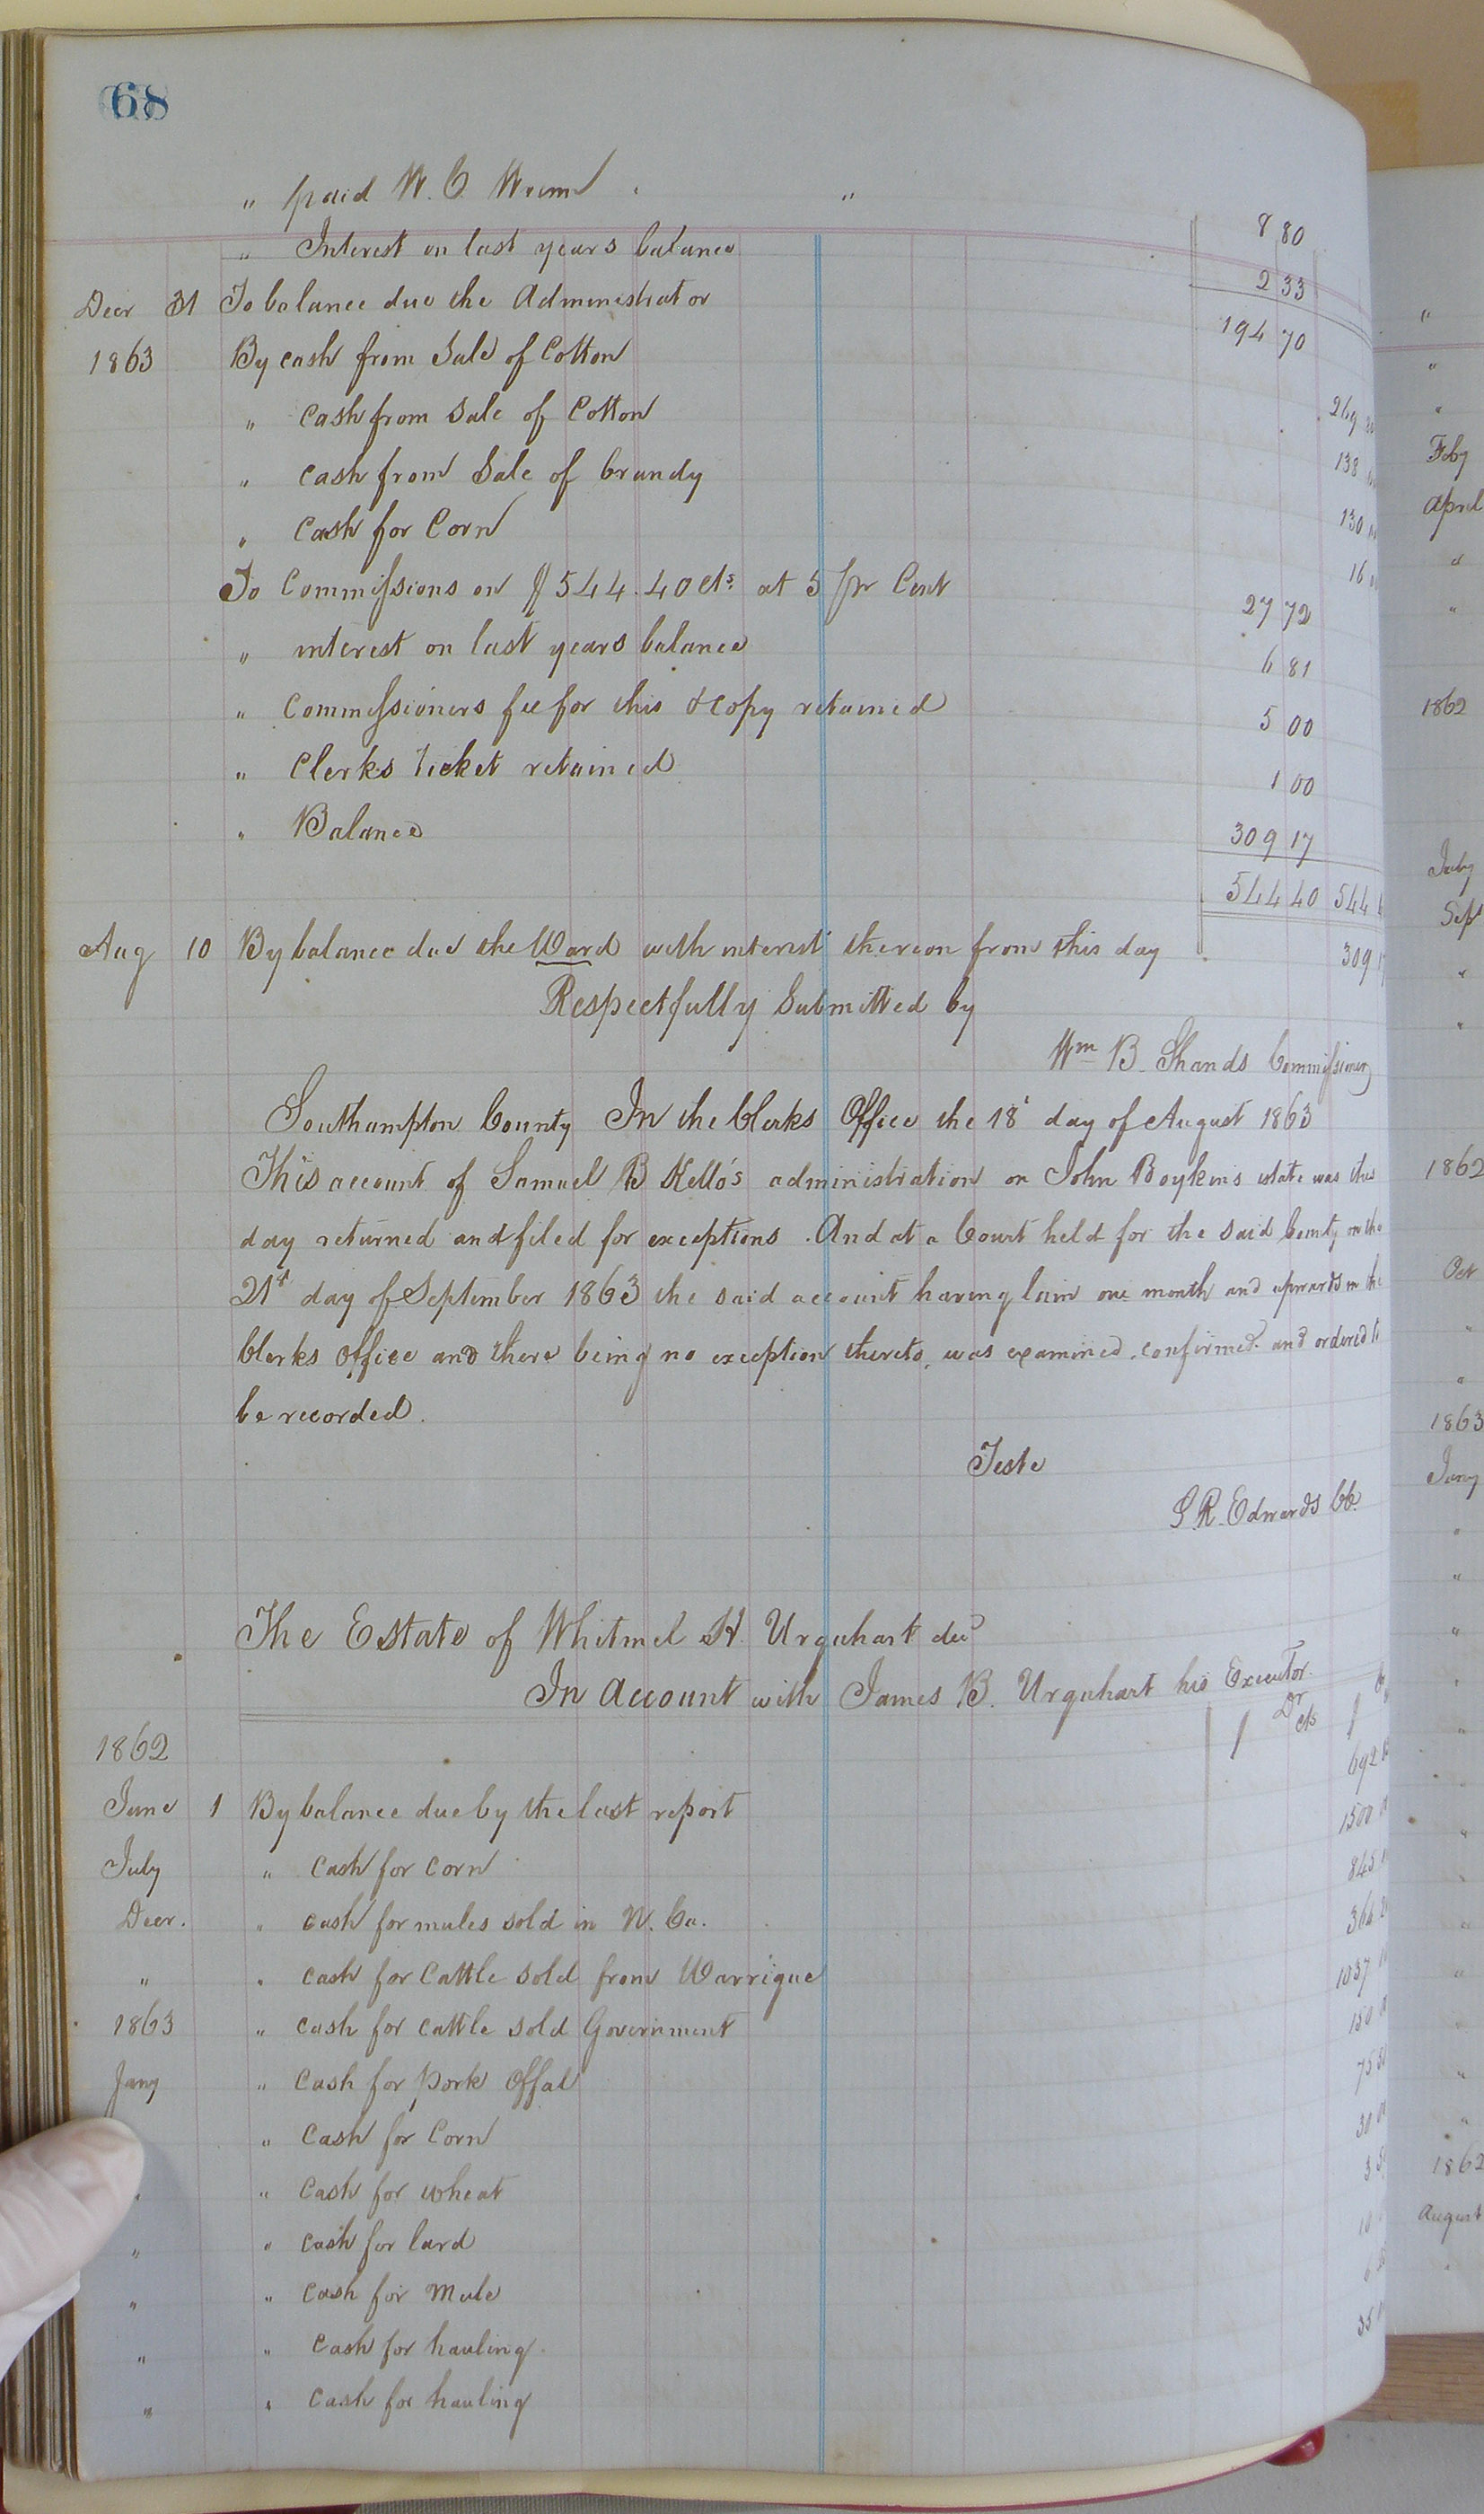 68
" paid W. O. "
" Interest on last years balance 8 80
Decr 31 To balance due the Administrator 2 33
1863 By cash from Sale of Cotton 194 70
" Cash from Sale of Cotton 269
" Cash from Sale of brandy 138
" Cash for Corn 130
To Commissions on $544.40 cts at 5 pr Cent 27 72 16
" interest on last years balance 6 81
" Commissioners fee for this & copy retained 5 00
" Clerks ticket retained 1 00
" Balance 309 17
544 40 544
Aug 10 By balance due the Ward with interest thereon from this day 309
Respectfully Submitted by
Wm B. Shands Commissioner
Southampton County In the Clerks Office the 18 day of August 1863
This account of Samuel B Kello's administration on John Boykins estate was this
day returned and filed for exceptions. And at a Court held for the said County on the
21st day of September 1863 the said account having lain one month and upwards in the
Clerks office and there being no exception thereto, was examined, confirmed and ordered to
be recorded.
Teste
S. R. Edwards CC.
The Estate of Whitmel H. Urquhart decd
In Account with James B. Urquhart his Executor
1862 Dr $ cts $
June 1 By balance due by the last report 692
July " Cash for corn 1500
Decr. " cash for mules sold in N. Ca. 845
" " cash for Cattle sold from Warrique 364
1863 " cash for cattle sold Government 1037
Jany " Cash for pork Offal 150
" Cash for Corn 75
" " Cash for wheat 30
" " cash for lard 3
" " Cash for Mule 10
" " Cash for hauling 6
" " Cash for hauling 35
"
"
"
Feby
April
"
"
1862
July
Sept
"
"
1862
Oct
"
"
1863
Jany
"
"
"
1862
August